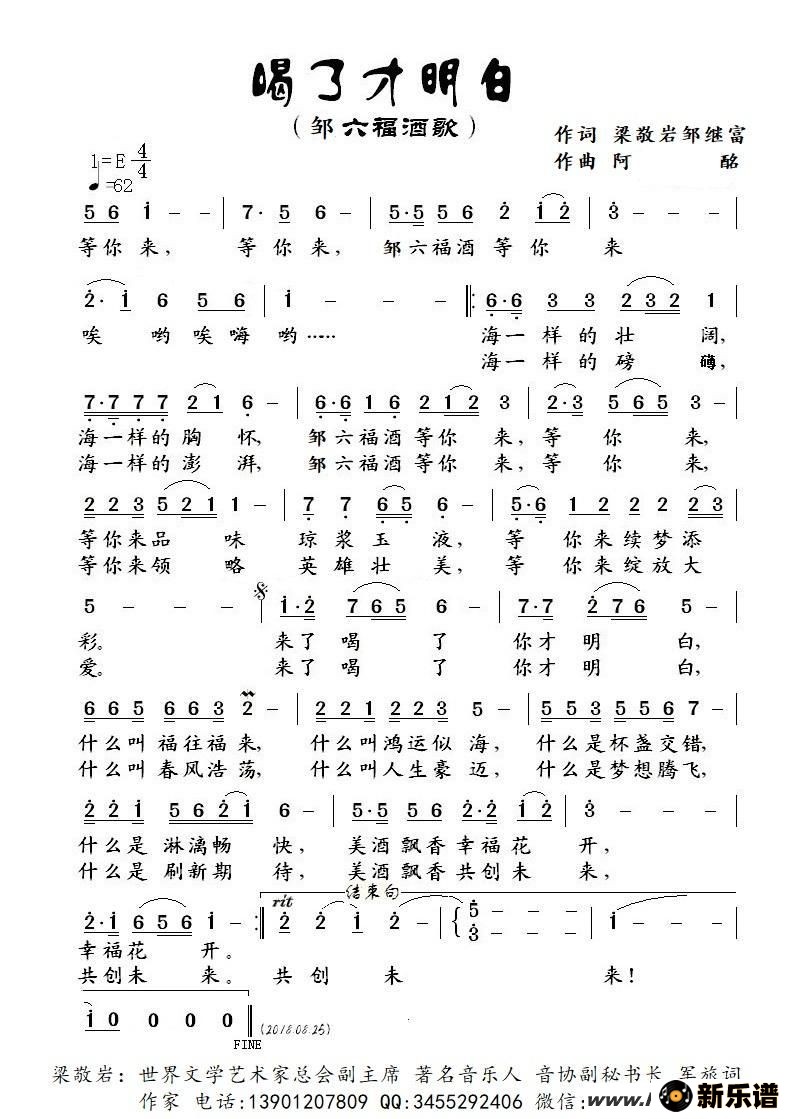 喝了才明白
（邹六福酒歌）
作词 梁敬岩邹继富
作曲 阿 酩
1=E 4/4
♩=62
5 6 i - - | 7· 5 6 - | 5·5 5 6 2 i 2 | 3 - - |
等你 来， 等 你 来， 邹六福酒 等 你 来
2· i 6 5 6 | i - - - ‖: 6·6 3 3 2 3 2 1 |
唉 哟 唉 嗨 哟…… 海一 样 的 壮 阔，
海一 样 的 磅 礴，
7·7 7 7 2 1 6 - | 6·6 1 6 2 1 2 3 | 2·3 5 6 5 |
海一样的 胸 怀， 邹六福酒 等你 来， 等 你 来，
海一样的 澎 湃， 邹六福酒 等你 来， 等 你 来，
2 2 3 5 2 1 1 - | 7 7 6 5 6 - | 5·6 1 2 2 2 2 |
等你来品 味 琼 浆 玉 液， 等 你 来续梦添
等你来领 略 英 雄 壮 美， 等 你 来绽放大
5 - - - | i·2 7 6 5 6 - | 7·7 2 7 6 5 - |
彩。 来了 喝 了 你才 明 白，
爱。 来了 喝 了 你才 明 白，
6 6 5 6 6 3 2 - | 2 2 1 2 2 3 5 - | 5 5 3 5 5 6 7 - |
什么叫 福往福 来， 什么叫鸿运似 海， 什么是杯盏交错，
什么叫 春风浩 荡， 什么叫人生豪 迈， 什么是梦想腾飞，
2 2 i 5 6 2 i 6 - | 5·5 5 6 2·2 i 2 | 3 - - |
什么是 淋漓畅 快， 美酒飘香幸福花 开，
什么是 刷新期 待， 美酒飘香共创未 来，
rit 结束句
2·i 6 5 6 i - :‖ 2 2 i i 2 - | 5 3 - - - | i - - - |
幸福花 开。
共创未 来。 共 创 未 来！
i 0 0 0 0 ‖ (2018.08.25)
FINE
梁敬岩：世界文学艺术家总会副主席 著名音乐人 音协副秘书长 军旅词
作家 电话:13901207809 QQ:3455292406 微信:
www.
新乐谱